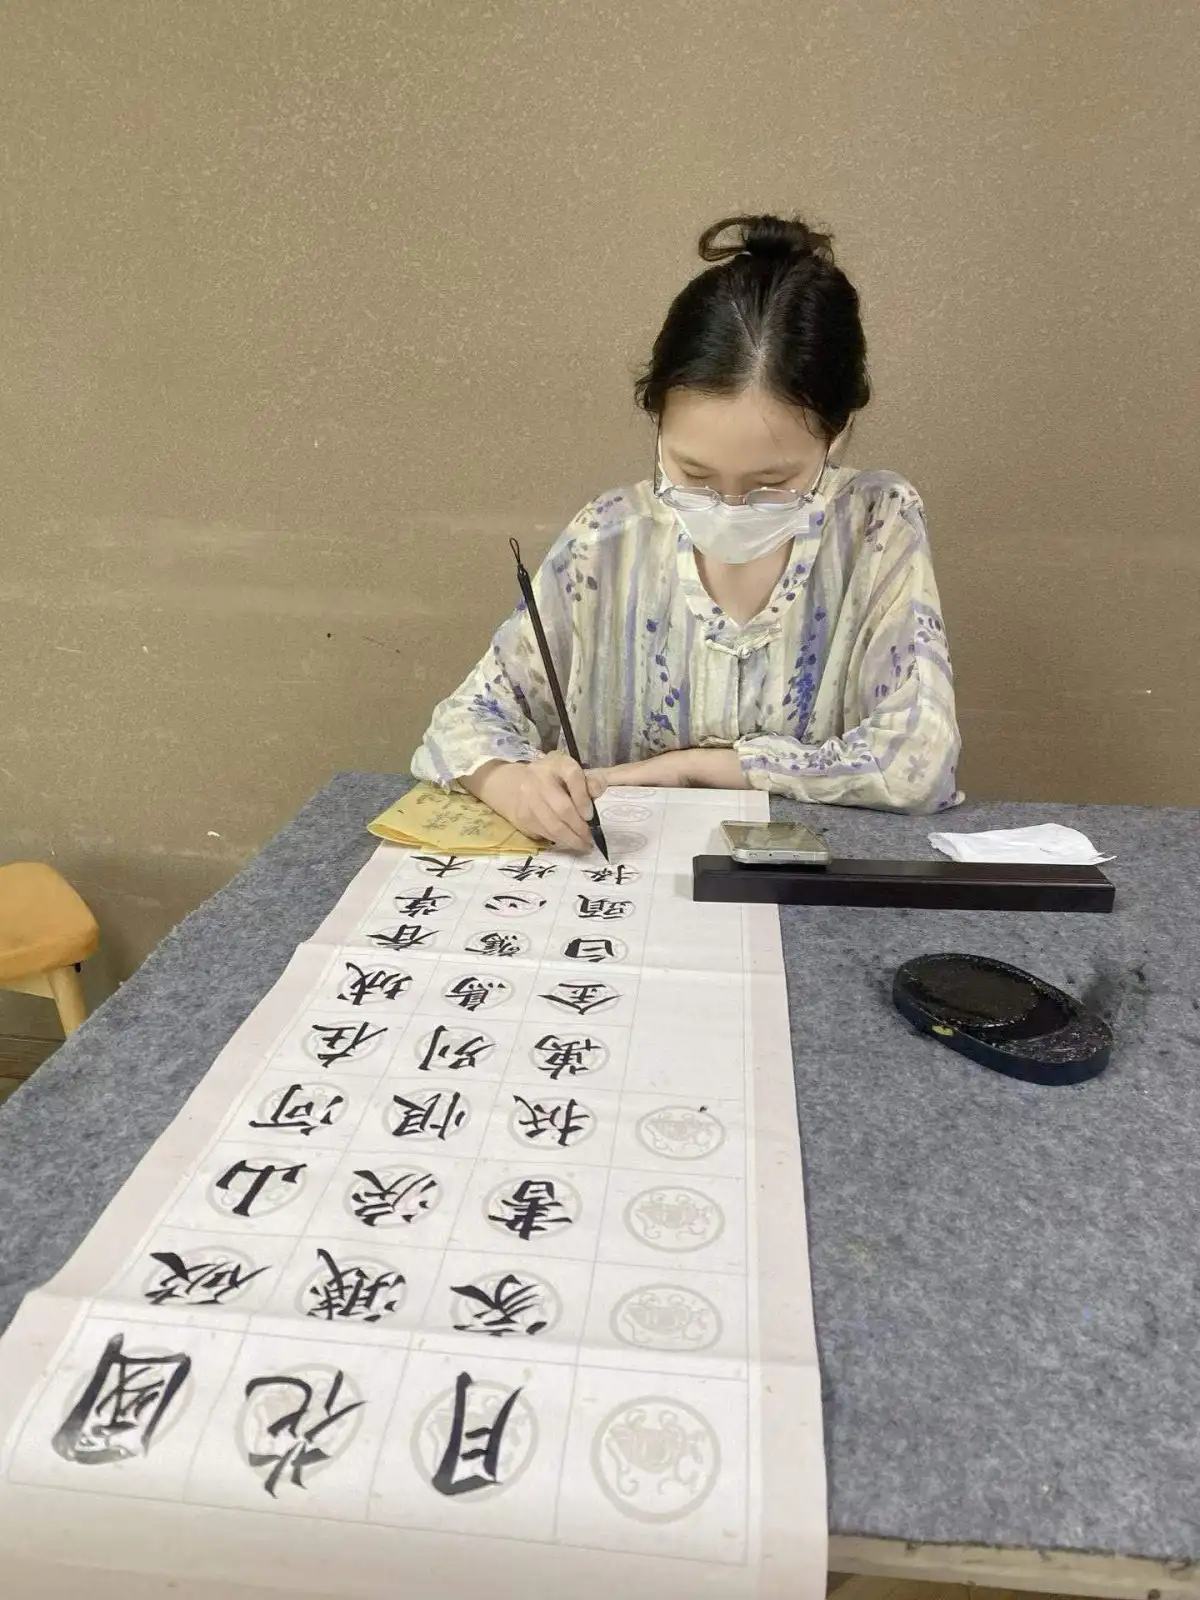 國破山河在城春草木
花濺淚恨別鳥驚心烽
月家書抵萬金白頭搔